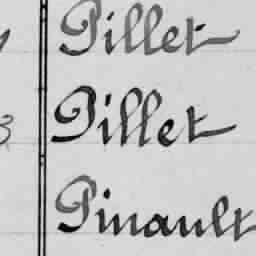 Pillet
3 Pillet
Pinault